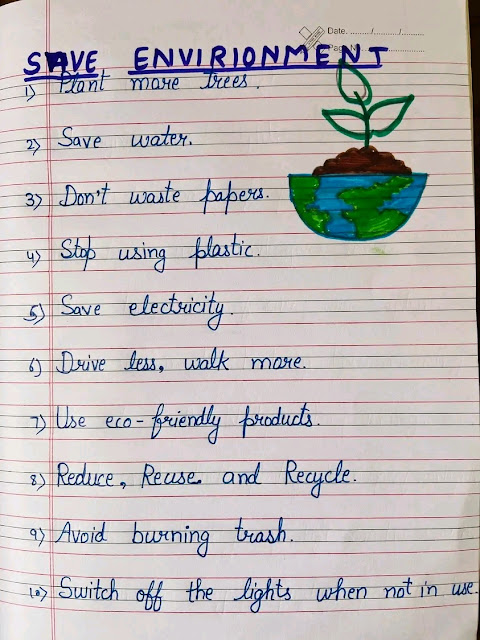 Date. ......../......../........
Page No.
SAVE ENVIRIONMENT
1) Plant more trees.
2) Save water.
3) Don't waste papers.
4) Stop using plastic.
5) Save electricity.
6) Drive less, walk more.
7) Use eco-friendly products.
8) Reduce, Reuse and Recycle.
9) Avoid burning trash.
10) Switch off the lights when not in use.